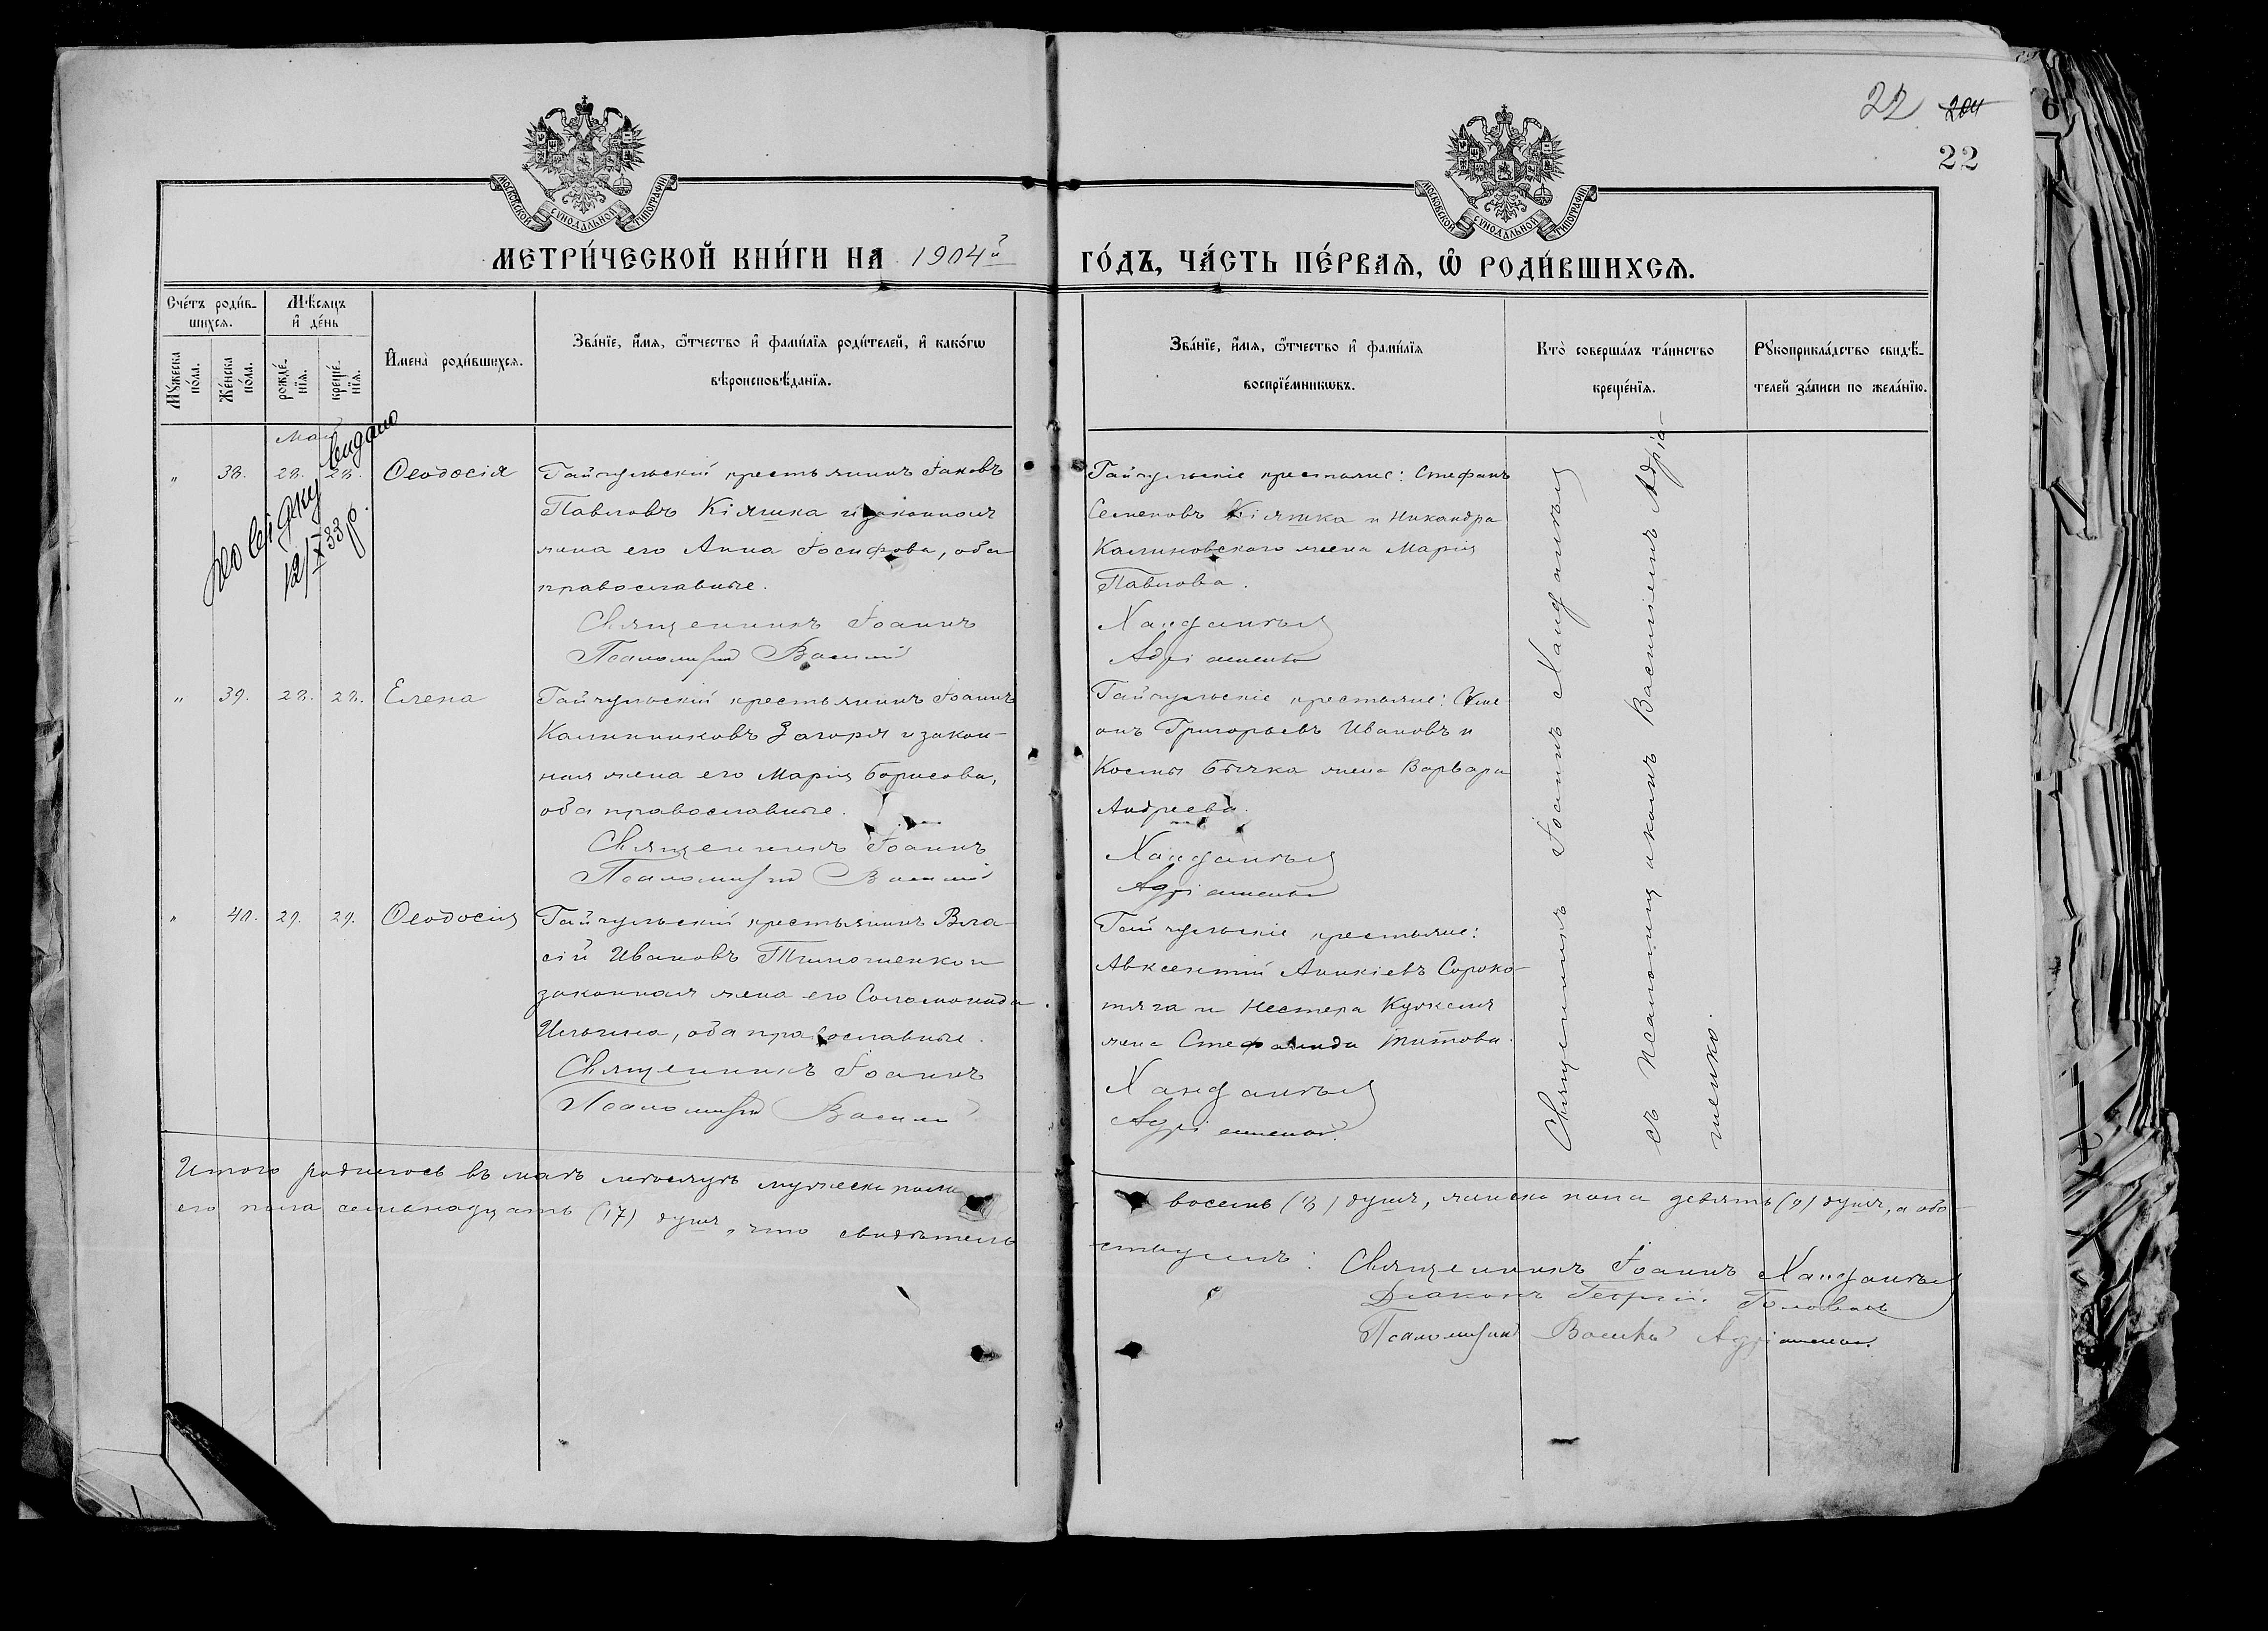 22 204
22
6
МОСКОВСКОЙ СѴНОДАЛЬНОЙ ТИПОГРАФІИ
МОСКОВСКОЙ СѴНОДАЛЬНОЙ ТИПОГРАФІИ
МЕТРИ́ЧЕСКОЙ КНИ́ГИ НА 1904й
ГО́ДЪ, ЧА́СТЬ ПЕ́РВАѦ, Ѽ РОДИ́ВШИХСѦ.
Сче́тъ роди́в-
шихсѧ.
Мѣ́сѧцъ
и҆ де́нь
Мꙋ́жеска
по́ла.
Же́нска
по́ла.
рожде́-
нїѧ.
креще́-
нїѧ.
И҆мена̀ роди́вшихсѧ.
Зва́нїе, и҆́мѧ, ѻ҆́тчество и҆ фами́лїѧ роди́телей, и҆ како́гѡ
вѣроисповѣ́данїѧ.
Зва́нїе, и҆́мѧ, ѻ҆́тчество и҆ фами́лїѧ
воспрїе́мникѡвъ.
Кто̀ соверша́лъ та́инство
креще́нїѧ.
Рꙋкоприкла́дство свидѣ́-
телей за́писи по жела́нїю.
Май
видано
12/X 33 р.
" 38. 28. 28. Ѳеодосія
Гайчульскій крестьянинъ Іаковъ
Павловъ Кіяшка и законная
жена его Анна Іосифова, оба
православные.
Священникъ Іоаннъ
Псаломщикъ Василій
Гайчульскіе крестьяне: Стефанъ
Семеновъ Кіяшка и Никандра
Калиновскаго жена Марія
Павлова.
Хандалѣевъ
Адріаненко
" 39. 28. 28. Елена
Гайчульскій крестьянинъ Іоаннъ
Калинниковъ Загоря и закон-
ная жена его Марія Борисова,
оба православные.
Священникъ Іоаннъ
Псаломщикъ Василій
Гайчульскіе крестьяне: Сіме-
онъ Григорьевъ Ивановъ и
Космы Бычка жена Варвара
Андреева.
Адріаненко
" 40. 29. 29. Ѳеодосія
Гайчульскій крестьянинъ Вла-
сій Ивановъ Тимошенко и
законная жена его Соломонида
Ильина, оба православные.
Священникъ Іоаннъ
Псаломщикъ Василій
Гайчульскіе крестьяне:
Авксентій Аникіевъ Сороко-
тяга и Нестера Кужеля
жена Стефанида Титова.
Адріаненко
Священникъ Іоаннъ
съ псаломщикомъ Василіемъ Адріа-
ненко.
Итого родилось въ маѣ мѣсяцѣ мужеска пола восемь (8) душъ, женска пола девять (9) душъ, а обо-
его пола семнадцать (17) душъ, что свидѣтель-
ствуемъ: Священникъ Іоаннъ
Діаконъ Георгій
Псаломщикъ Василій Адріаненко.